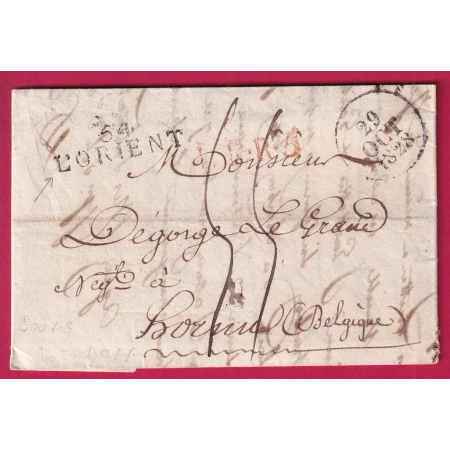 54
L'ORIENT
29
OCT
1828
Monsieur
Dégorge Le Grand
Negt. à
hornu (Belgique)